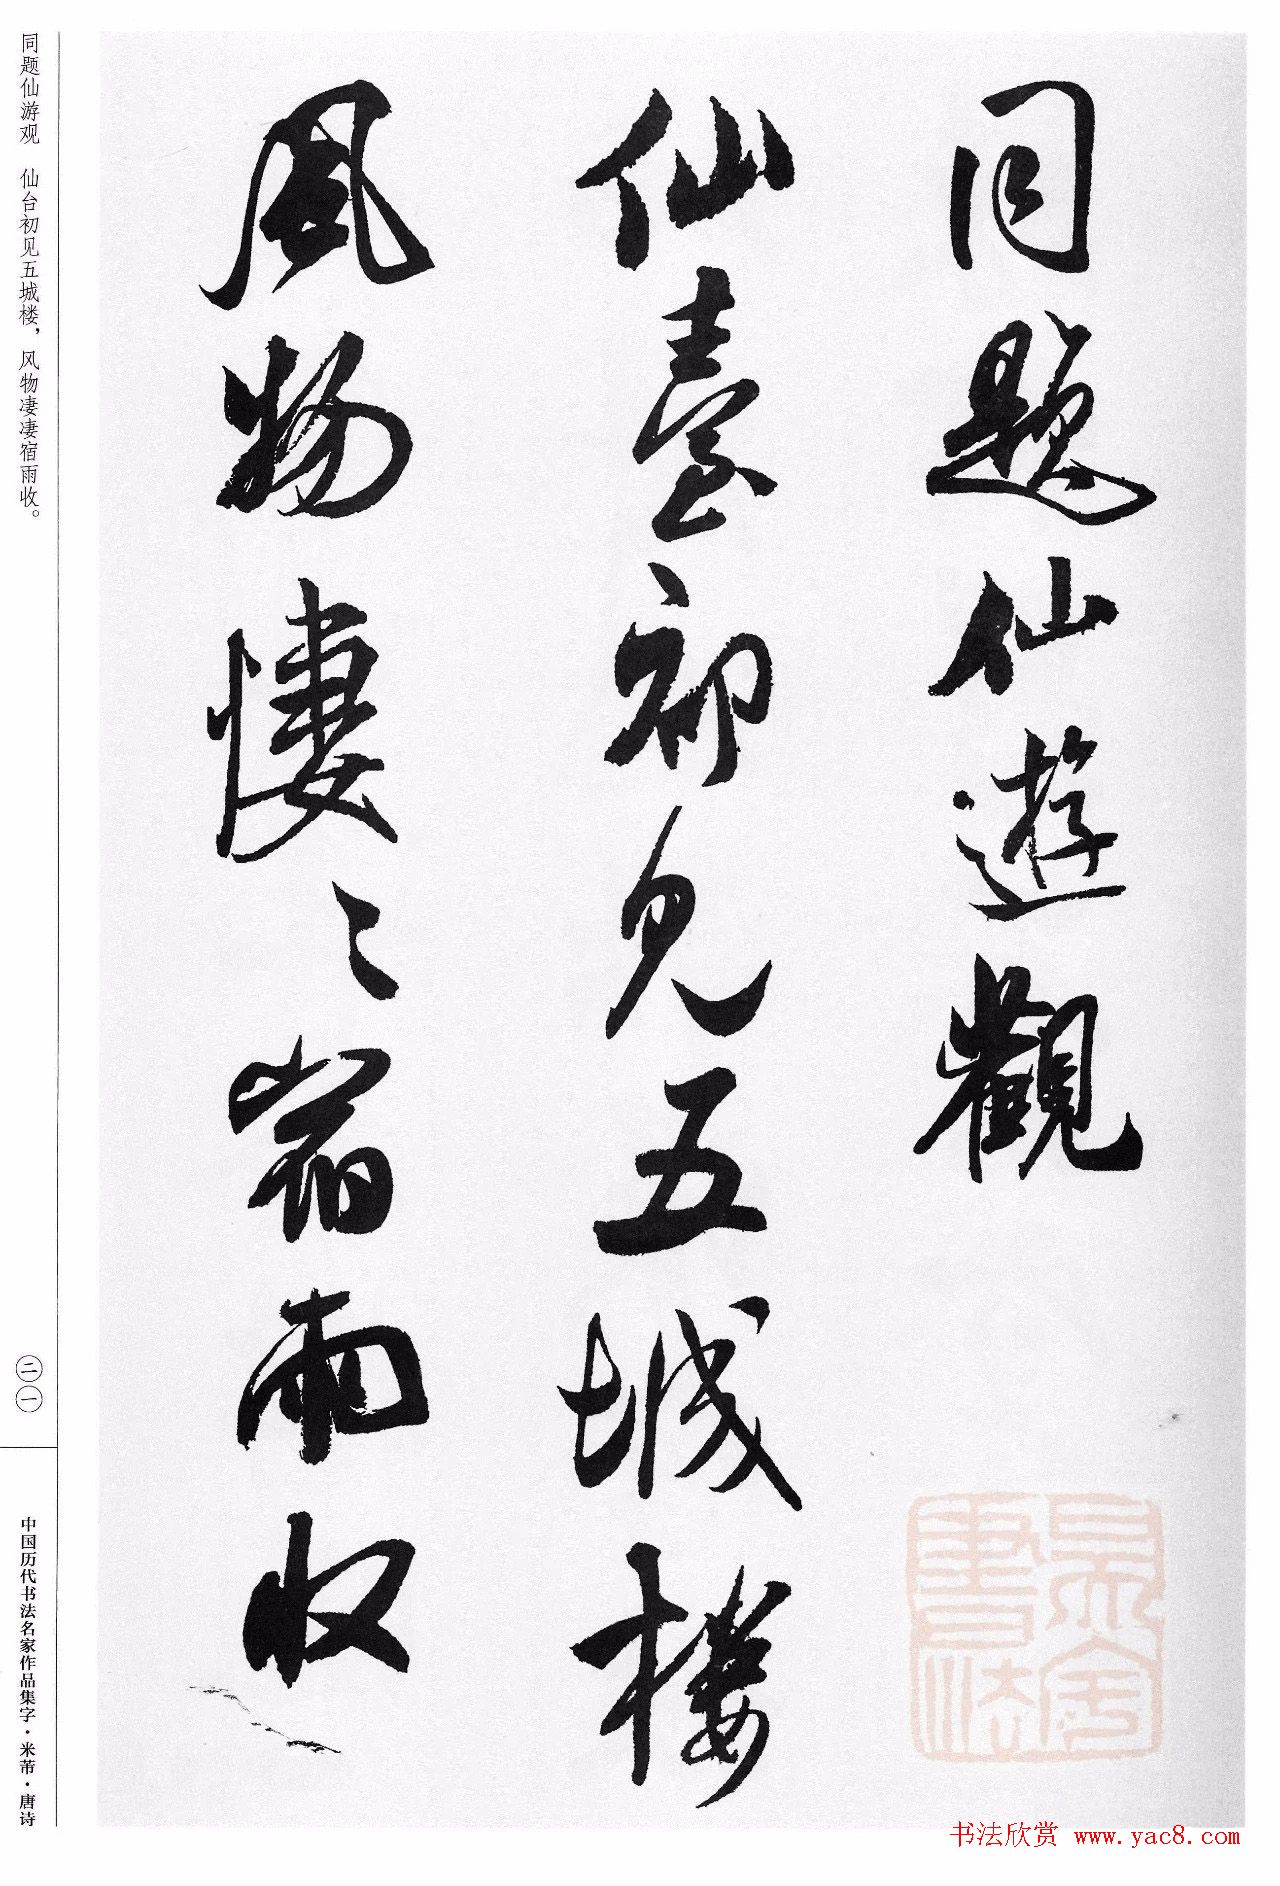 同題仙遊觀
仙臺初見五城樓
風物悽〻宿雨收
同题仙游观 仙台初见五城楼，风物凄凄宿雨收。
二一
中国历代书法名家作品集字·米芾·唐诗
书法欣赏 www.yac8.com